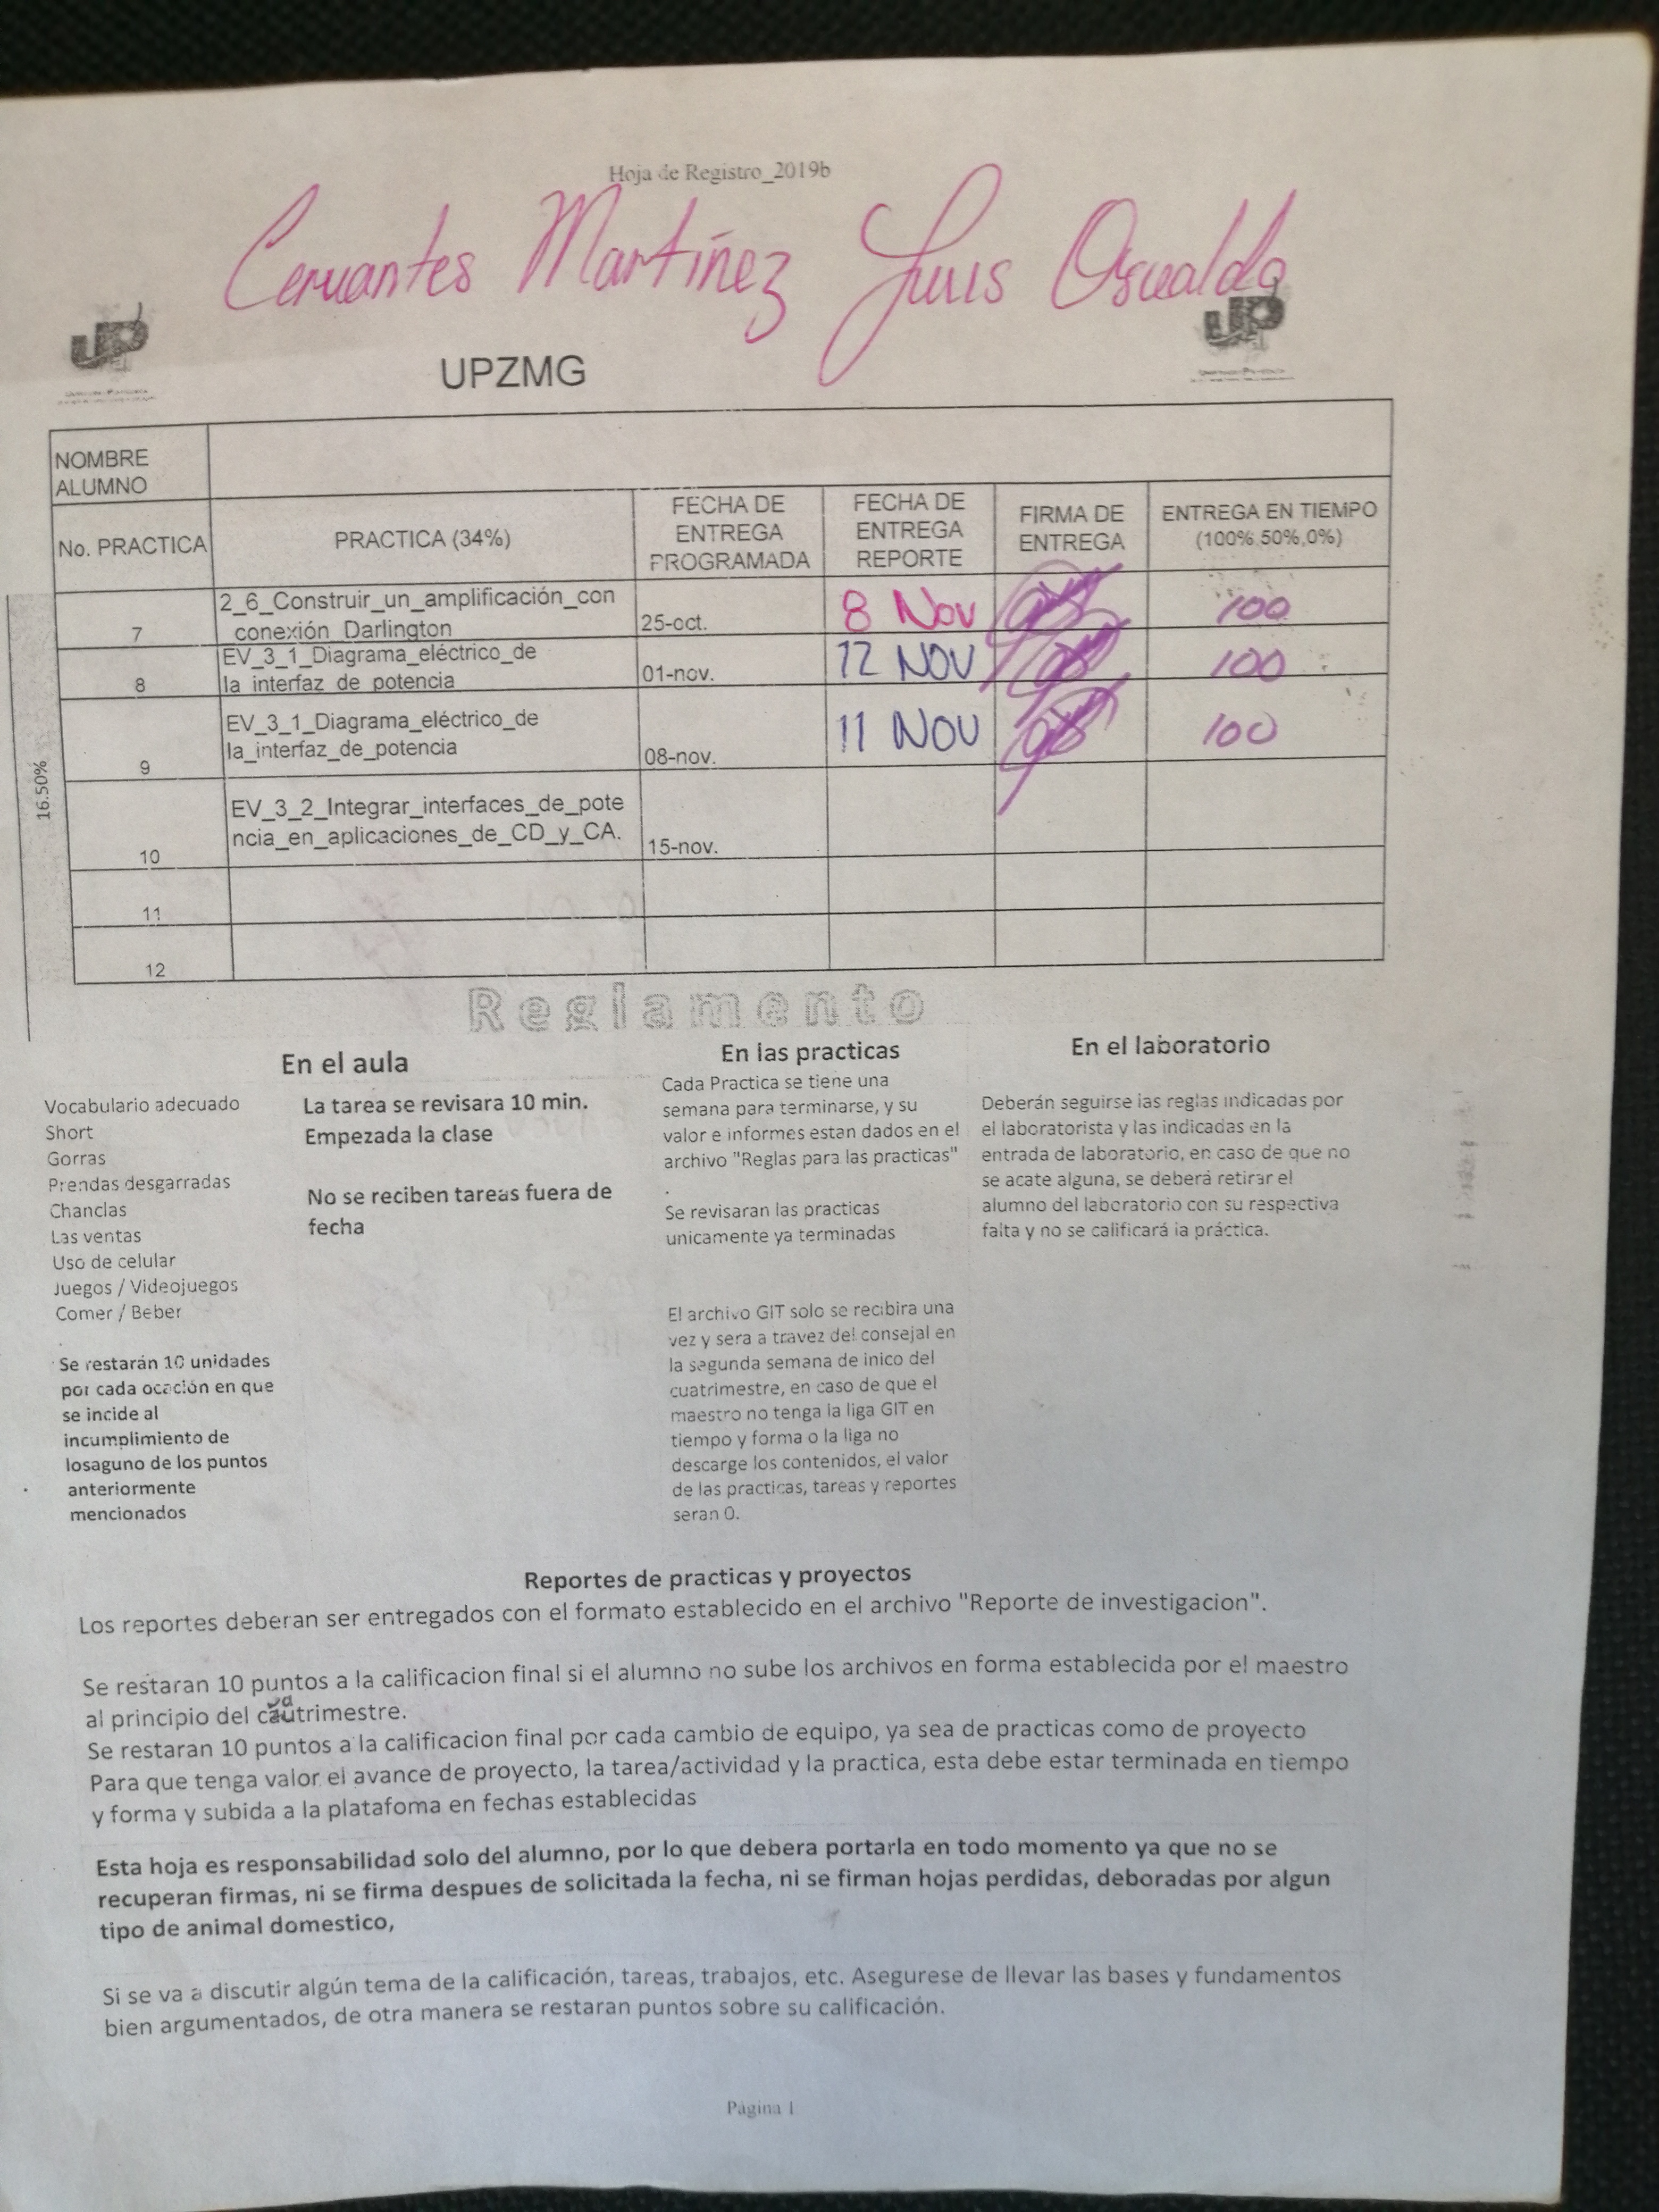 Hoja de Registro_2019b
Cervantes Martínez Luis Oswaldo
UP
UP
UPZMG
NOMBRE
ALUMNO
No. PRACTICA
PRACTICA (34%)
FECHA DE
ENTREGA
PROGRAMADA
FECHA DE
ENTREGA
REPORTE
FIRMA DE
ENTREGA
ENTREGA EN TIEMPO
(100%,50%,0%)
16.50%
7
2_6_Construir_un_amplificación_con
_conexión_Darlington
25-oct.
8 Nov
100
8
EV_3_1_Diagrama_eléctrico_de
la_interfaz_de_potencia
01-nov.
12 NOV
100
9
EV_3_1_Diagrama_eléctrico_de
la_interfaz_de_potencia
08-nov.
11 NOV
100
10
EV_3_2_Integrar_interfaces_de_pote
ncia_en_aplicaciones_de_CD_y_CA.
15-nov.
11
12
Reglamento
En el aula
Vocabulario adecuado
Short
Gorras
Prendas desgarradas
Chanclas
Las ventas
Uso de celular
Juegos / Videojuegos
Comer / Beber
Se restarán 10 unidades
por cada ocación en que
se incide al
incumplimiento de
losaguno de los puntos
anteriormente
mencionados
La tarea se revisara 10 min.
Empezada la clase
No se reciben tareas fuera de
fecha
En las practicas
Cada Practica se tiene una
semana para terminarse, y su
valor e informes estan dados en el
archivo "Reglas para las practicas"
.
Se revisaran las practicas
unicamente ya terminadas
El archivo GIT solo se recibira una
vez y sera a travez del consejal en
la segunda semana de inico del
cuatrimestre, en caso de que el
maestro no tenga la liga GIT en
tiempo y forma o la liga no
descarge los contenidos, el valor
de las practicas, tareas y reportes
seran 0.
En el laboratorio
Deberán seguirse las reglas indicadas por
el laboratorista y las indicadas en la
entrada de laboratorio, en caso de que no
se acate alguna, se deberá retirar el
alumno del laboratorio con su respectiva
falta y no se calificará la práctica.
Reportes de practicas y proyectos
Los reportes deberan ser entregados con el formato establecido en el archivo "Reporte de investigacion".
Se restaran 10 puntos a la calificacion final si el alumno no sube los archivos en forma establecida por el maestro
al principio del cautrimestre.
Se restaran 10 puntos a la calificacion final por cada cambio de equipo, ya sea de practicas como de proyecto
Para que tenga valor el avance de proyecto, la tarea/actividad y la practica, esta debe estar terminada en tiempo
y forma y subida a la platafoma en fechas establecidas
Esta hoja es responsabilidad solo del alumno, por lo que debera portarla en todo momento ya que no se
recuperan firmas, ni se firma despues de solicitada la fecha, ni se firman hojas perdidas, deboradas por algun
tipo de animal domestico,
Si se va a discutir algún tema de la calificación, tareas, trabajos, etc. Asegurese de llevar las bases y fundamentos
bien argumentados, de otra manera se restaran puntos sobre su calificación.
Página 1